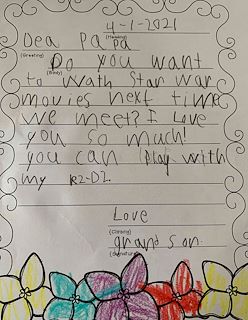 4-1-2021
(Heading)
Dea Papa
(Greeting)
Do you want
(Body)
to wath Star War
movies next time
we meet? I Love
you so much!
you can Play with
my R2-D2.
Love
(Closing)
grandson.
(Signature)